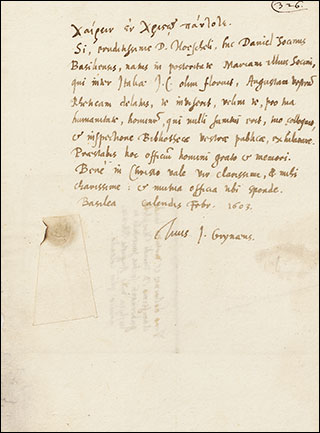 326.
Χαίρειν ἐν Χριστῷ πάντοτε.
Si, eruditissime D. Hoescheli, hic Daniel Socinus
Basiliensis, natus in posteritate Mariani illius Socini,
qui inter Italiae J. C. olim floruit, Augustam vestram
Rheticam delatus, te inviserit, velim ei, pro tua
humanitate, hominem, qui nulli sumtui erit, tuo colloquio,
& inspectione Bibliothecae vestrae publicae, exhilarare.
Praestabis hoc officium homini grato & memori.
Bene in Christo vale vir clarissime, & mihi
charissime : & mutua officia tibi sponde.
Basilea Calendis Febr. 1603.
Tuus J. Grynaeus.